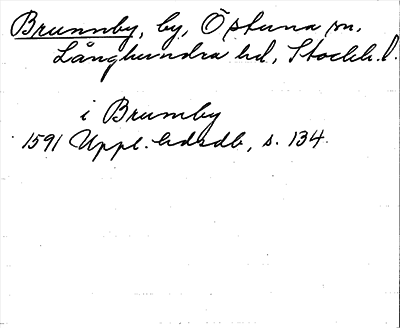 Brunnby, by, Östuna sn,
Långhundra hd, Stockh. l.
i Brumby
1591 Uppl. hdrdb, s. 134.